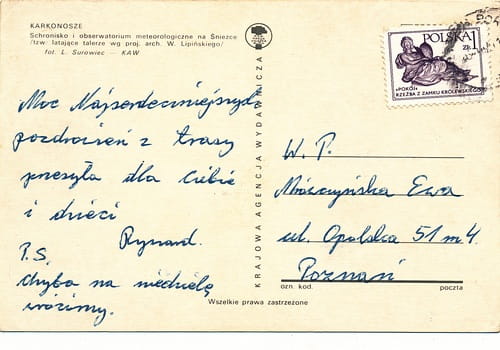 KARKONOSZE
Schronisko i obserwatorium meteorologiczne na Śnieżce
/tzw. latające talerze wg proj. arch. W. Lipińskiego/
fot. L. Surowiec — KAW
Moc Najserdeczniejszych
pozdrowień z trasy
przesyła dla Ciebie
i dzieci
Ryszard.
P.S.
chyba na niedzielę
wrócimy.
KRAJOWA AGENCJA WYDAWNICZA
POLSKA 1
ZŁ
«POKÓJ»
RZEŹBA Z ZAMKU KRÓLEWSKIEGO
W. P.
Ewa
ul. Opolska 51 m 4.
Poznań
ozn. kod. poczta
Wszelkie prawa zastrzeżone